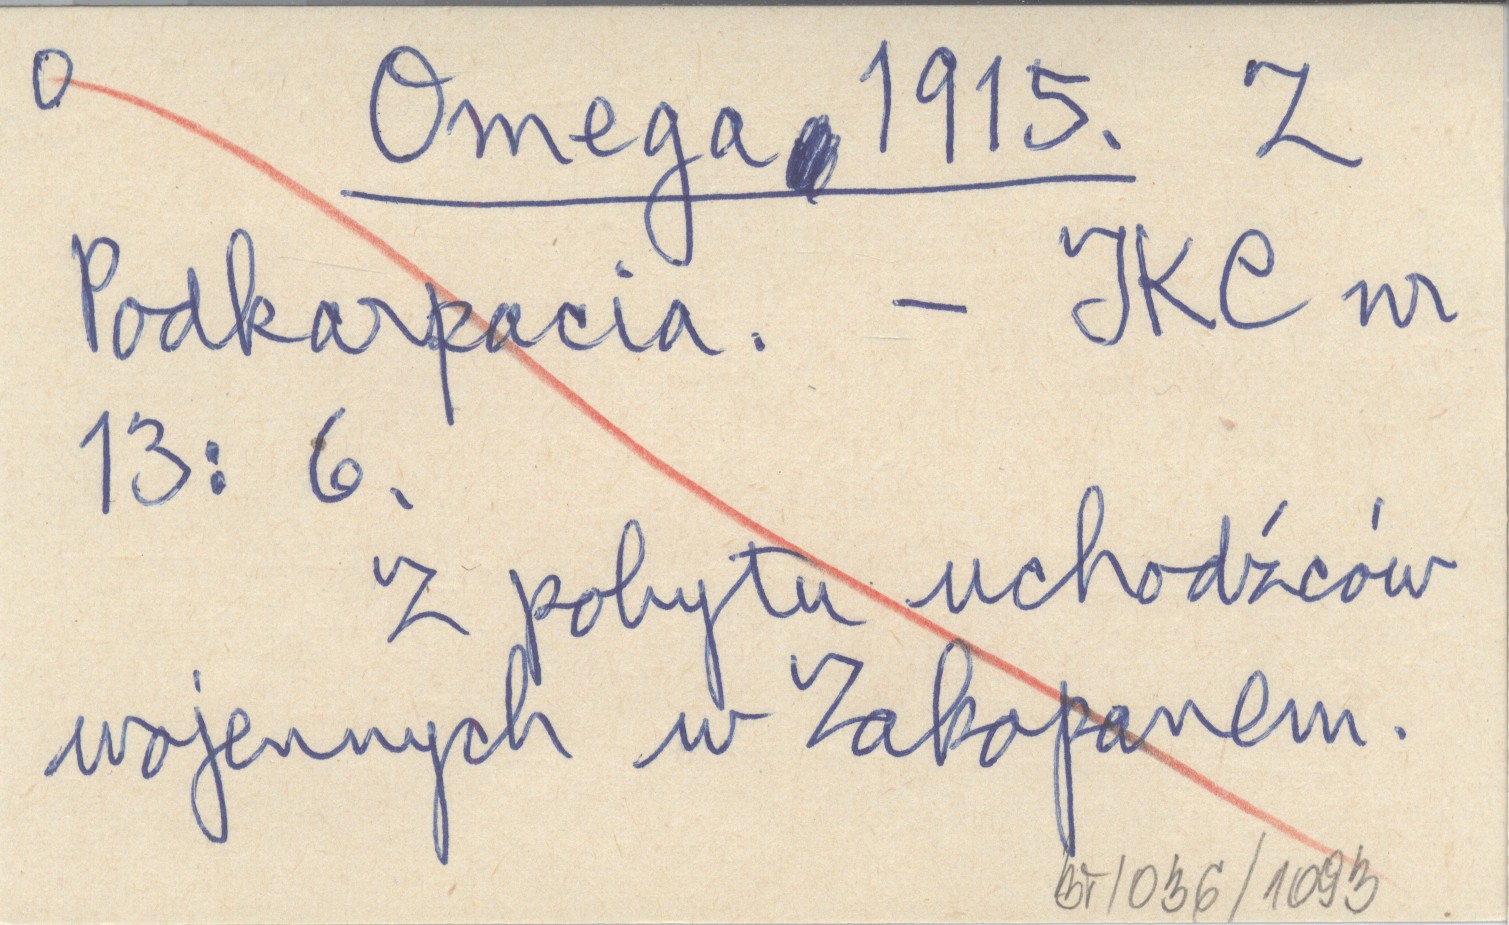 O Omega, 1915. Z
Podkarpacia. – JKC nr
13: 6.
Z pobytu uchodźców
wojennych w Zakopanem.
/036/1093